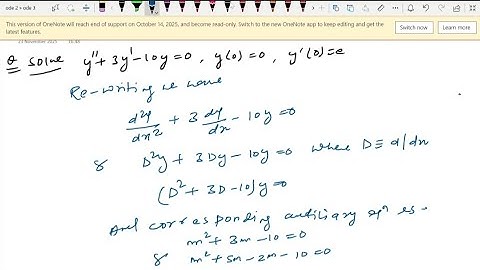 ode 2 + ode 3
This version of OneNote will reach end of support on October 14, 2025, and become read-only. Switch to the new OneNote app to keep editing and get the latest features.
Switch now
Learn more
23 November 2025 16:48
Q solve y'' + 3y' - 10y = 0, y(0) = 0, y'(0) = e
Re-writing we have
d²y/dx² + 3 dy/dx - 10y = 0
D²y + 3Dy - 10y = 0 where D ≡ d/dx
(D² + 3D - 10)y = 0
And corresponding auxiliary eqn is -
m² + 3m - 10 = 0
m² + 5m - 2m - 10 = 0